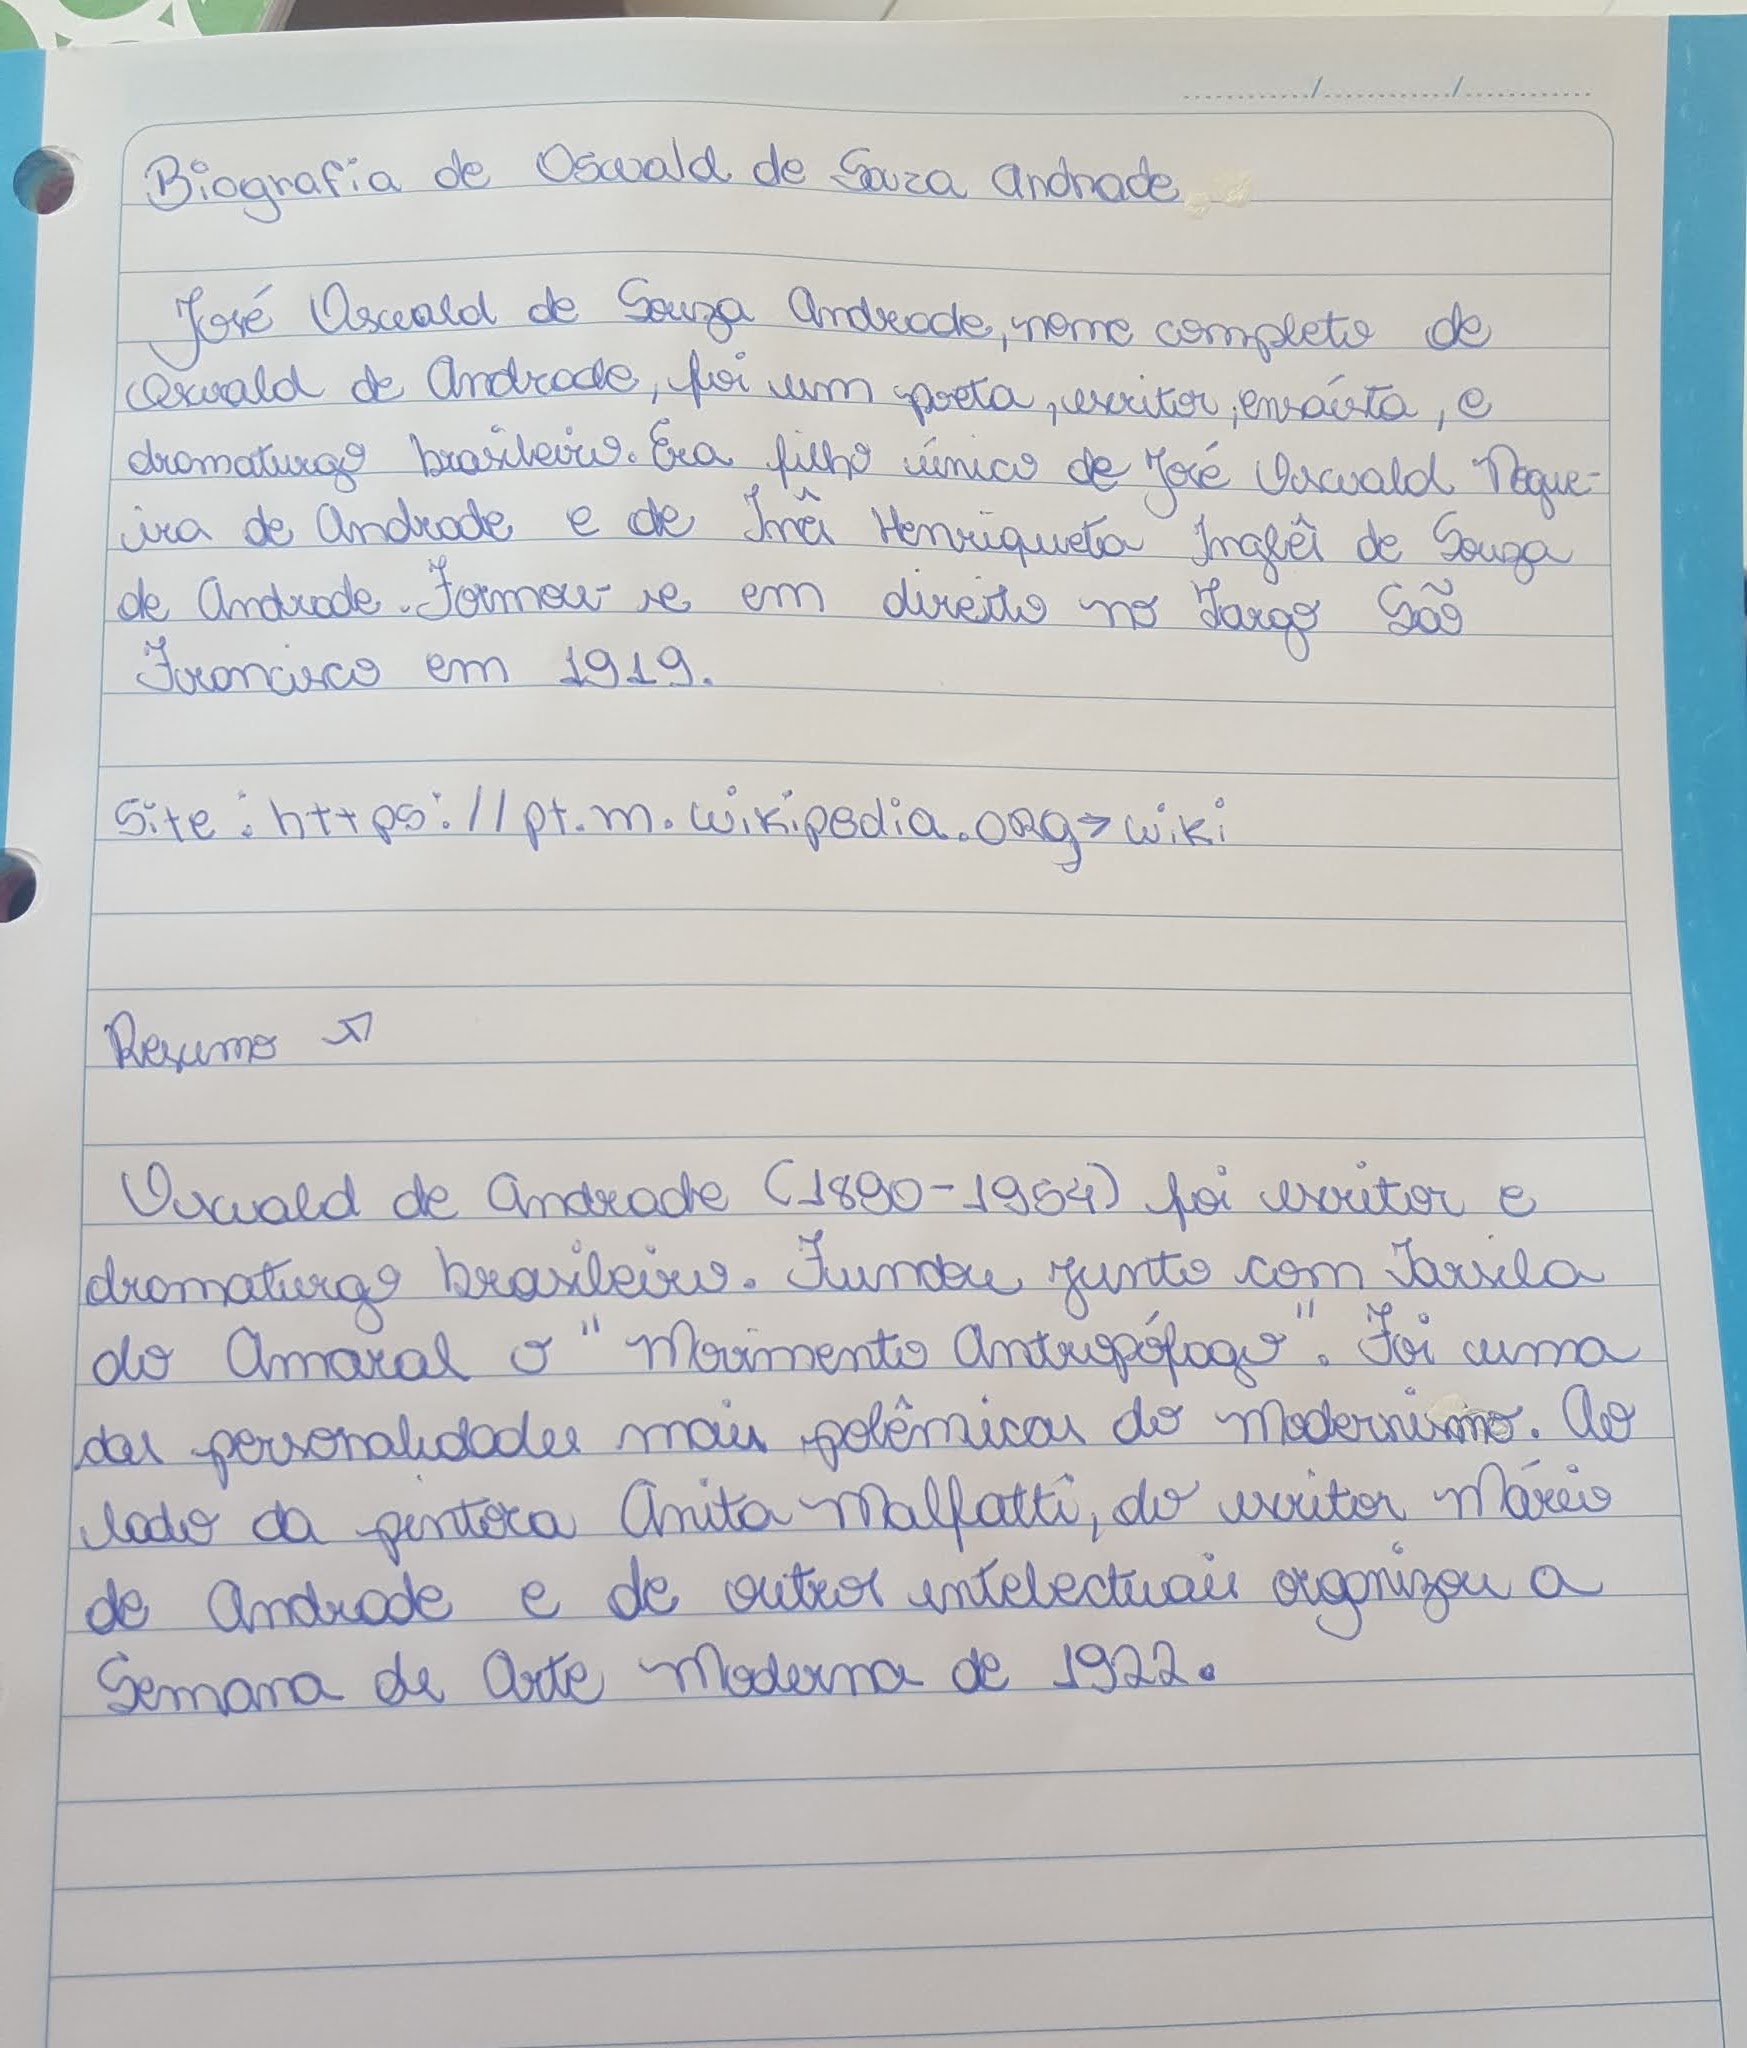 Biografia de Oswald de Souza Andrade
José Oswald de Souza Andrade, nome completo de
Oswald de Andrade, foi um poeta, escritor, ensaísta, e
dramaturgo brasileiro. Era filho único de José Oswald Nogue-
ira de Andrade e de Inês Henriqueta Inglês de Souza
de Andrade. Formou-se em direito no Largo São
Francisco em 1919.
Site: https://pt.m.wikipedia.org>wiki
Resumo
Oswald de Andrade (1890-1954) foi escritor e
dramaturgo brasileiro. Fundou junto com Tarsila
do Amaral o "Movimento Antropófago". Foi uma
das personalidades mais polêmicas do Modernismo. Ao
lado da pintora Anita Malfatti, do escritor Mário
de Andrade e de outros intelectuais organizou a
Semana de Arte Moderna de 1922.